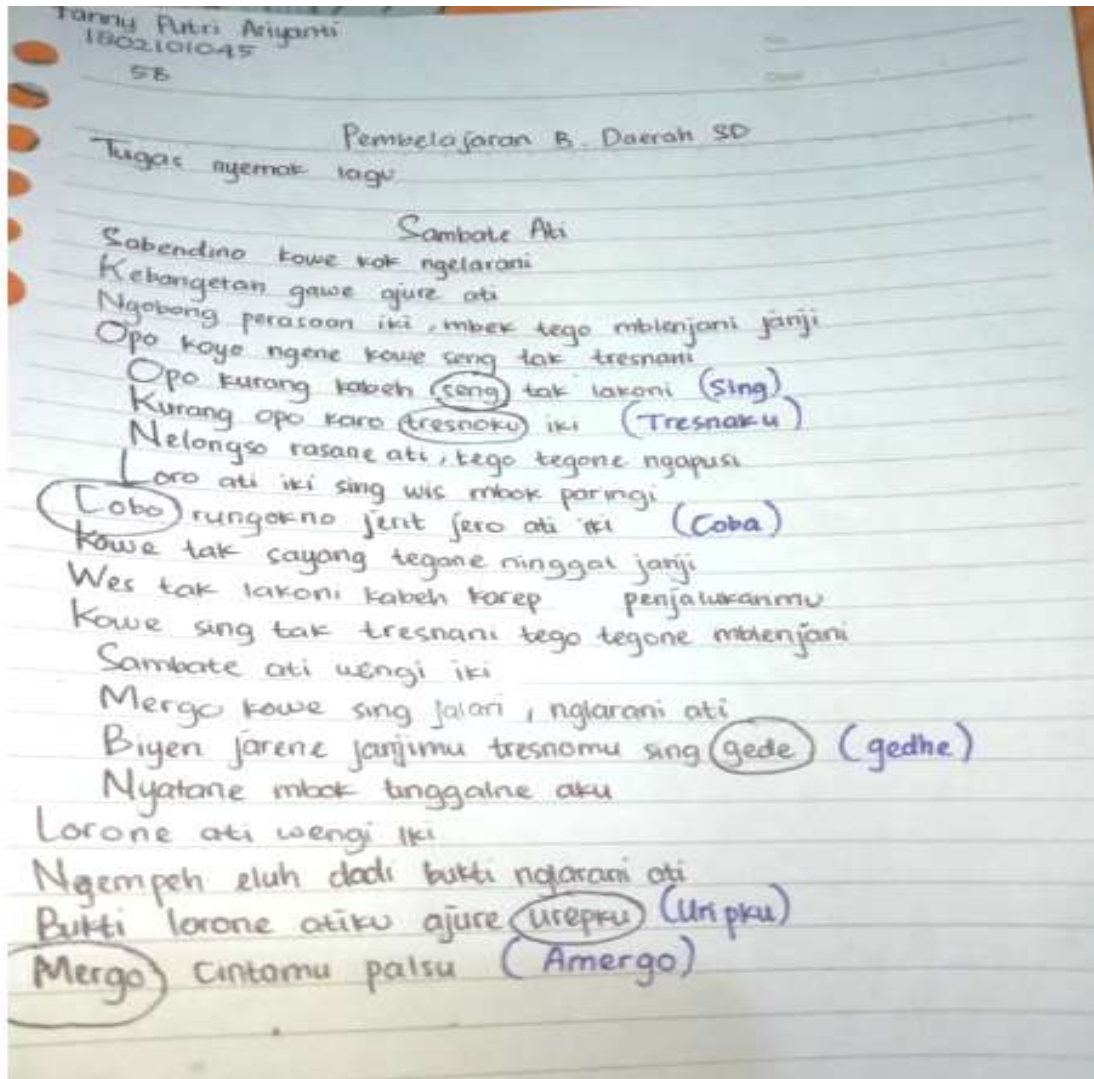 Fanny Putri Ariyanti
1802101045
5B
Pembelajaran B. Daerah SD
Tugas nyemak lagu
Sambate Ati
Sabendino kowe kok ngelarani
Kebangetan gawe ajure ati
Ngobong perasaan iki, mbek tego mblenjani janji
Opo koyo ngene kowe seng tak tresnani
Opo kurang kabeh seng tak lakoni (Sing)
Kurang opo karo tresnoku iki (Tresnaku)
Nelongso rasane ati, tego tegone ngapusi
Loro ati iki sing wis mbok paringi
Cobo rungokno jerit jero ati iki (Coba)
Kowe tak sayang tegane ninggal janji
Wes tak lakoni kabeh karep penjalukanmu
Kowe sing tak tresnani tego tegone mblenjani
Sambate ati wengi iki
Mergo kowe sing jalari, nglarani ati
Biyen jarene janjimu tresnomu sing gede (gedhe)
Nyatane mbok tinggalne aku
Lorone ati wengi iki
Ngempeh eluh dadi bukti nglarani ati
Bukti lorone atiku ajure urepku (Uripku)
Mergo cintamu palsu (Amergo)